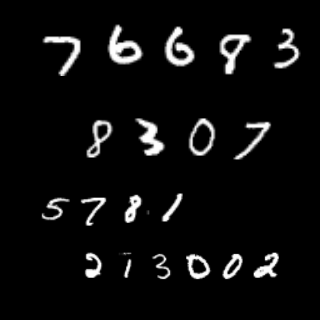 76683
8307
5781
213002